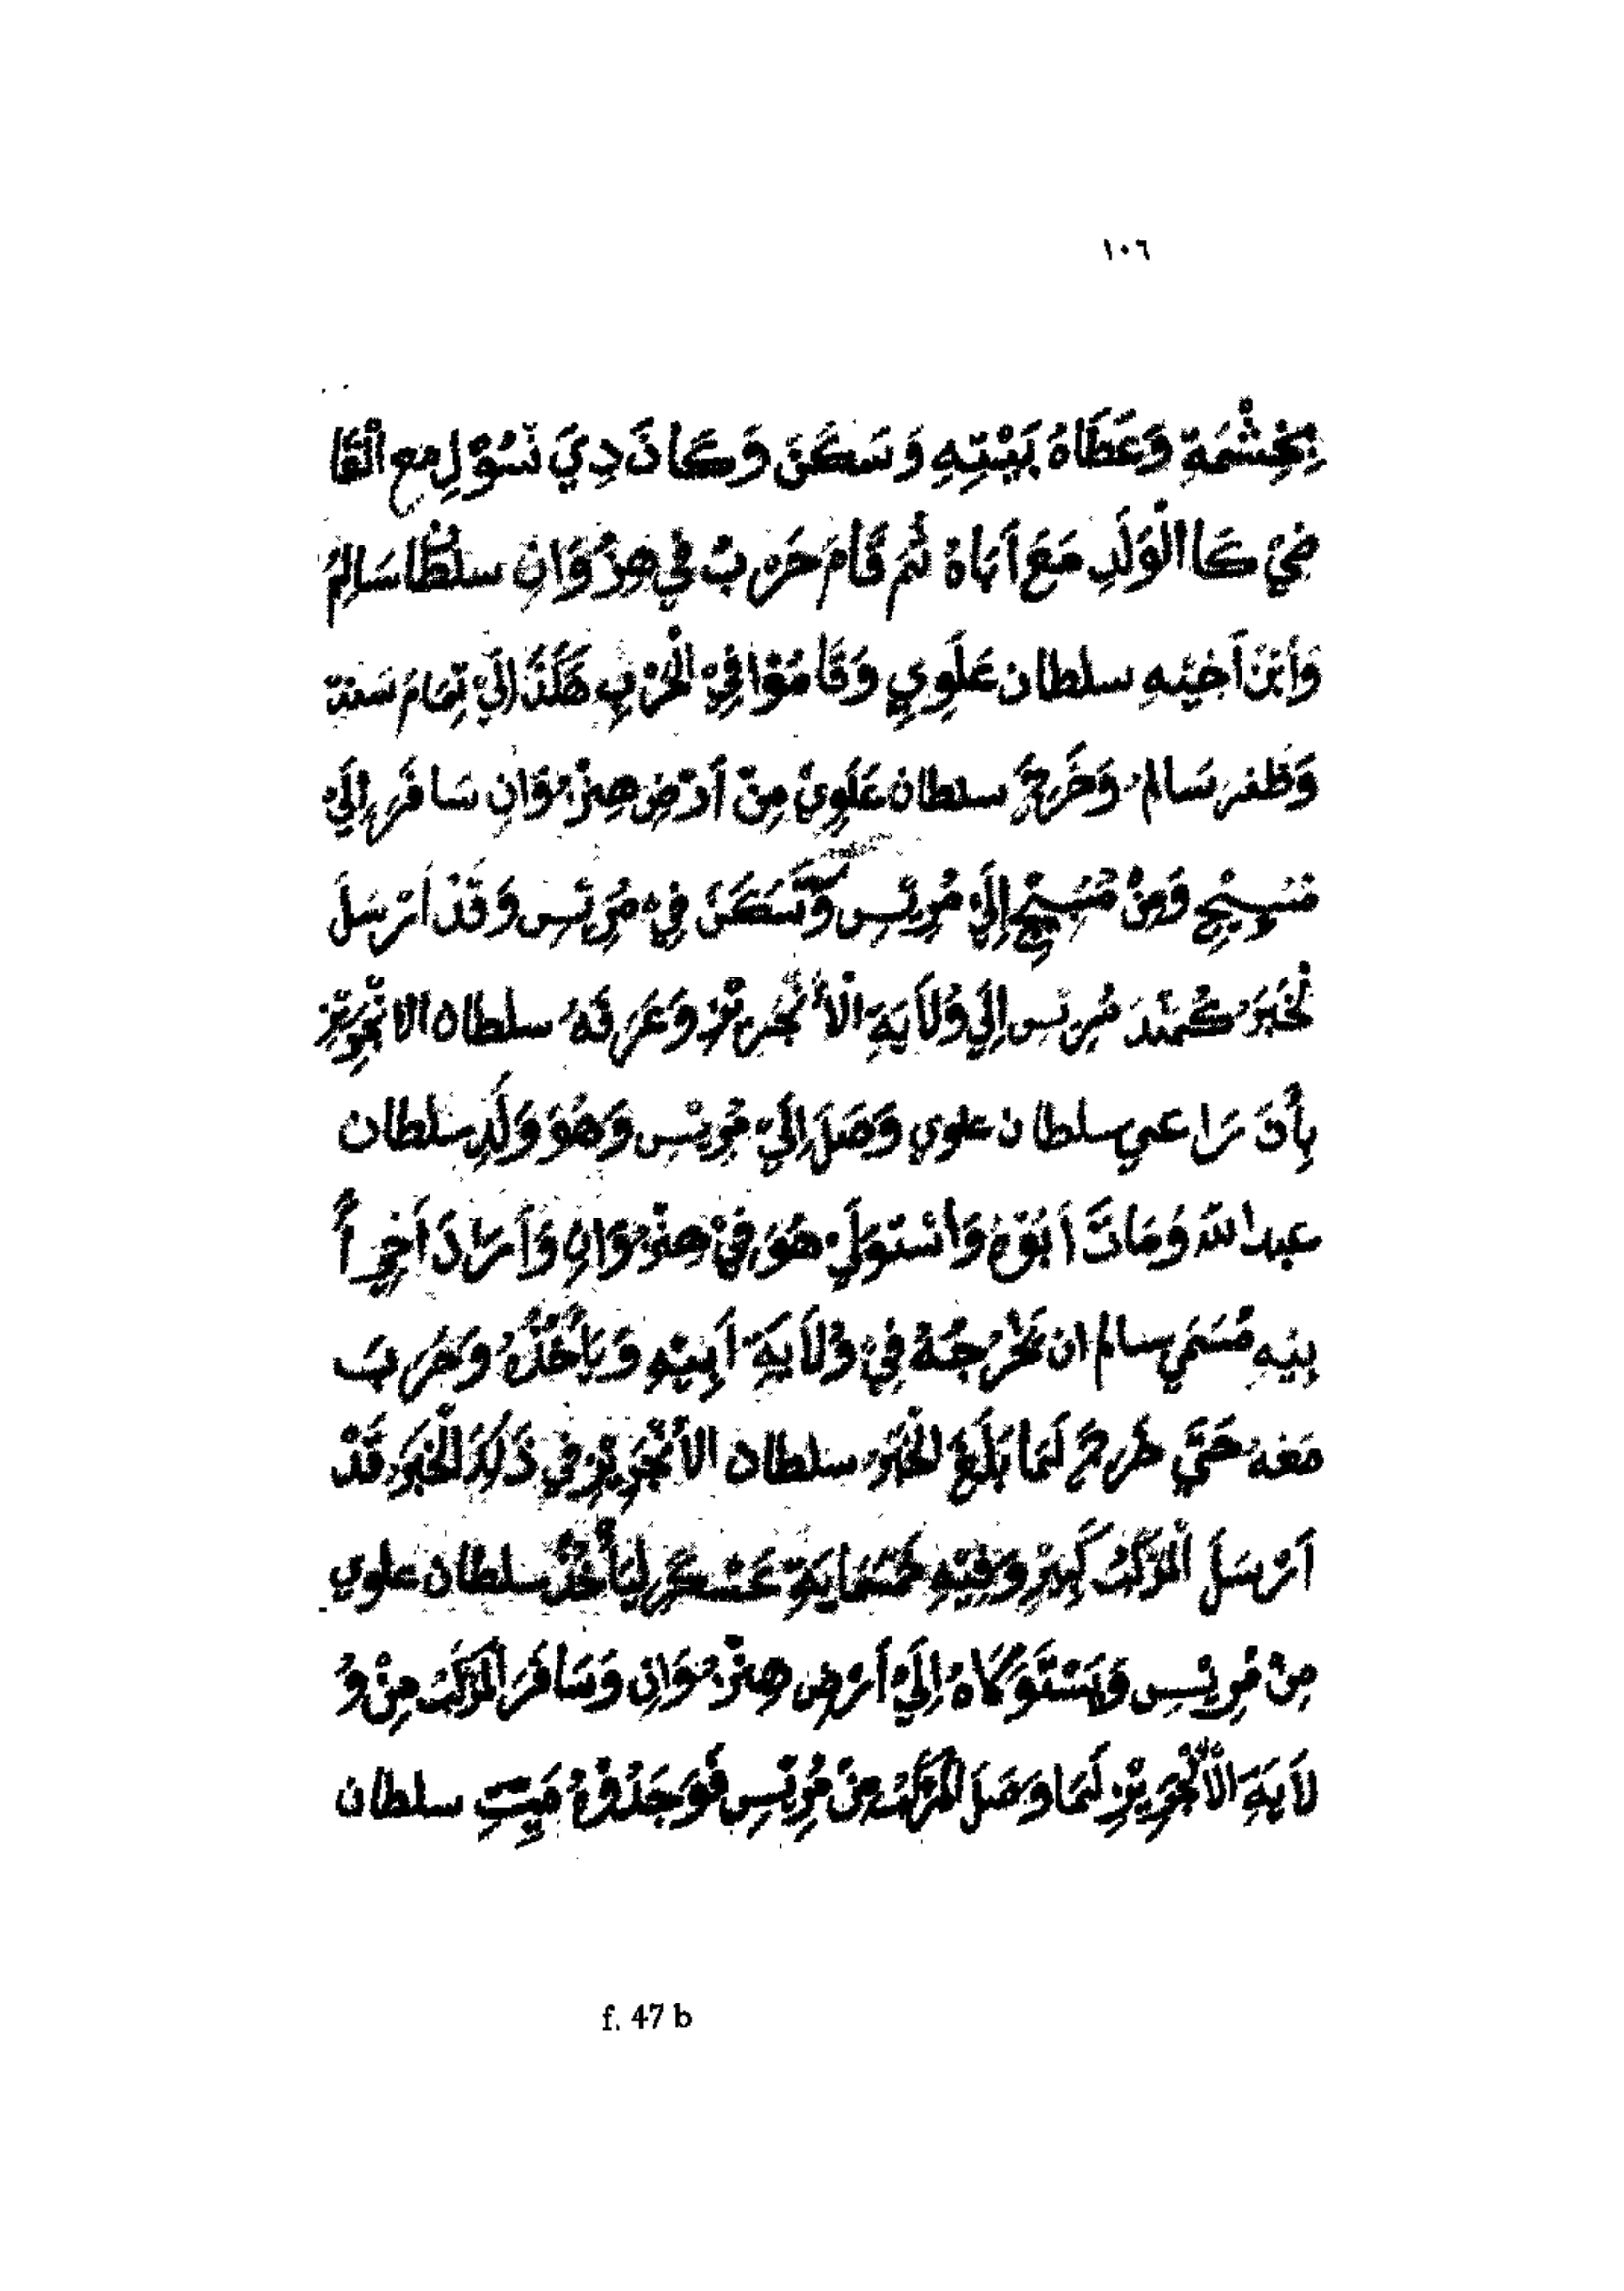 ١٠٦
بِخِشْمَةِ وَعَطَاهُ بَيْتِهِ وَسَكَنَ وَكَانَ دِيَ نَسُوْلِ مع الْقَا
ضِيْ كَا الْوَلَدِ مَعَ اَبَاهُ ثُمَّ قَامَ حَرْبٌ فِي هِزُوَانِ سلطَا سَالِمْ
وَاَبْنَ اَخِيْهِ سلطان عَلَوِي وَقَامُوْا فِيْ الْحَرْبِ هَكَذَا اِلَيْ تِمَامَ سَنَة
وَظفر سَالم وَخَرَجَ سلطان عَلَوِيْ مِنْ اَرْضِ هِنْزُوَانِ سَافَرَ اِلَيْ
مُسِبِيْج وَمِنْ مُسِبِيْج اِلَيْ مُرِيْسِ وَسَكَنَ فِيْ مُرِيْسِ وَقَدْ اَرْسَلَ
لْخَبَرَ كُمَنْدَ مُرِيْسِ اِلَي وُلَايَةِ الْاَنْجَرِيْز وَعَرَفَهُ سلطان الانْجَرِيْزِ
بِأَنَ رَاعي سلطان علوي وَصَلَ اِلَيْ مُرِيْسِ وَهُوَ وَلَدِ سلطان
عبد الله وَمَاتَ اَبُوْهُ وَاسْتَوَلَيْ هُوَ فِيْ هِنْزُوَانِ وَاَرَادَ اَخِيْ اَ
بِيْهِ مُسَمَي سالم ان يَخْرُجُهُ فِيْ وُلَايَةِ اَبِيْهِ وَيَاْخُذُ وَحَرَبَ
مَعَهُ حَتَّي طَرَحَ لَمَا بَلَغَ الْخَبَر سلطان الْاَنْجَرِيْزِ فِي ذَلِكَ الْخَبَرَ قَدْ
اَرْسَلَ الْمَرْكَبُ كَبِيْرٍ وَفِيْهِ خَمْسَمَايَةِ عَسْكَرِ لِيَاْخُذُ سلطان علوي
مِنْ مُرِيْسِ وَيَسْتَوَكَاهُ اِلَيْ اَرْضِ هِنْزُوَانِ وَسَافَرَ الْمَرْكَبُ مِنْ وُ
لَايَةِ الْاَنْجَرِيْزِ لَمَا وَصَلَ الْمَرْكَبُ مِنْ مُرِيْسِ فَوَجَدُوْهُ مَيِتِ سلطان
f. 47 b